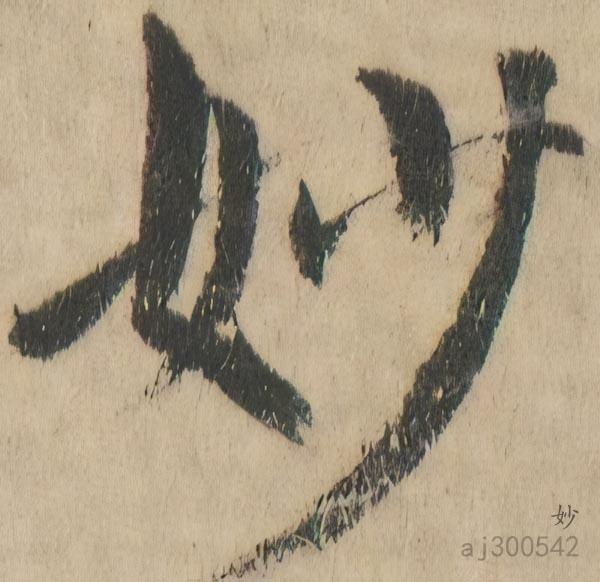 妙
妙
aj300542